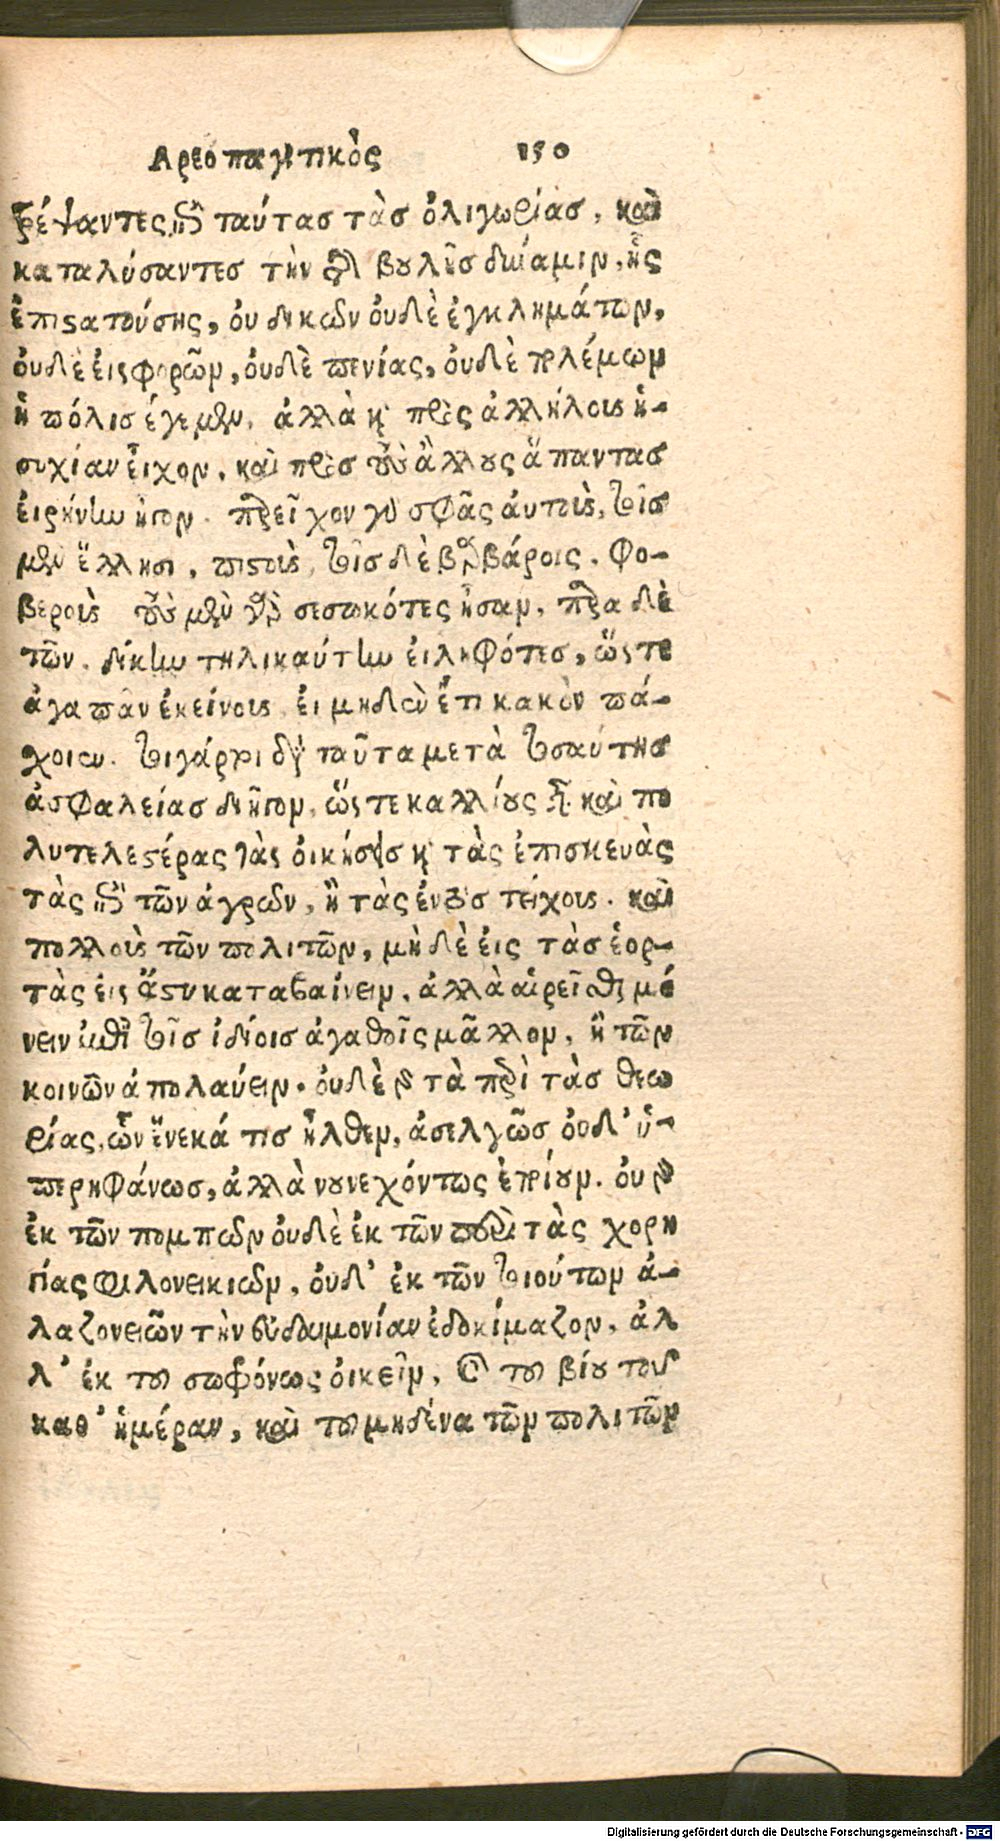 Αρεοπαγιτικὸς 150
τρέψαντες ἐπὶ ταύτας τὰς ὀλιγωρίας, καὶ
καταλύσαντες τὴν τῆς βουλῆς δύναμιν, ἧς
ἐπιστατούσης, οὐ δικῶν οὐδὲ ἐγκλημάτων,
οὐδὲ εἰσφορῶν, οὐδὲ πενίας, οὐδὲ πολέμων
ἡ πόλις ἔγεμεν, ἀλλὰ καὶ πρὸς ἀλλήλους ἡ-
συχίαν εἶχον, καὶ πρὸς τοὺς ἄλλους ἅπαντας
εἰρήνην ἦγον. παρεῖχον γὰρ σφᾶς αὐτοὺς, τοῖς
μὲν ἕλλησι, πιστοὺς, τοῖς δὲ βαρβάροις. Φο-
βεροὺς τοὺς μὲν γὰρ σεσωκότες ἦσαν, παρὰ δὲ
τῶν. δίκην τηλικαύτην εἰληφότες, ὥστε
ἀγαπᾶν ἐκείνους, εἰ μηδὲν ἔτι κακὸν πά-
χοιεν. τοιγάρτοι διὰ ταῦτα μετὰ τοσαύτης
ἀσφαλείας διῆγον, ὥστε καλλίους εἶναι καὶ πο
λυτελεστέρας τὰς οἰκήσεις καὶ τὰς ἐπισκευὰς
τὰς ἐπὶ τῶν ἀγρῶν, ἢ τὰς ἐντὸς τείχους. καὶ
πολλοὺς τῶν πολιτῶν, μὴ δὲ εἰς τὰς ἑορ-
τὰς εἰς ἄστυ καταβαίνειν, ἀλλὰ αἱρεῖσθαι μέ
νειν ἐπὶ τοῖς ἰδίοις ἀγαθοῖς μᾶλλον, ἢ τῶν
κοινῶν ἀπολαύειν. οὐδὲ γὰρ τὰ περὶ τὰς θεω
ρίας, ὧν ἕνεκά τις ἦλθεν, ἀσελγῶς οὐδ' ὑ-
περηφάνως, ἀλλὰ νουνεχόντως ἐποίουν. οὐ γὰρ
ἐκ τῶν πομπῶν οὐδὲ ἐκ τῶν περὶ τὰς χορη
γίας φιλονεικιῶν, οὐδ' ἐκ τῶν τοιούτων ἀ-
λαζονειῶν τὴν εὐδαιμονίαν ἐδοκίμαζον, ἀλ
λ' ἐκ τοῦ σωφρόνως οἰκεῖν, καὶ τοῦ βίου τοῦ
καθ' ἡμέραν, καὶ τοῦ μηδένα τῶν πολιτῶν
Digitalisierung gefördert durch die Deutsche Forschungsgemeinschaft - DFG